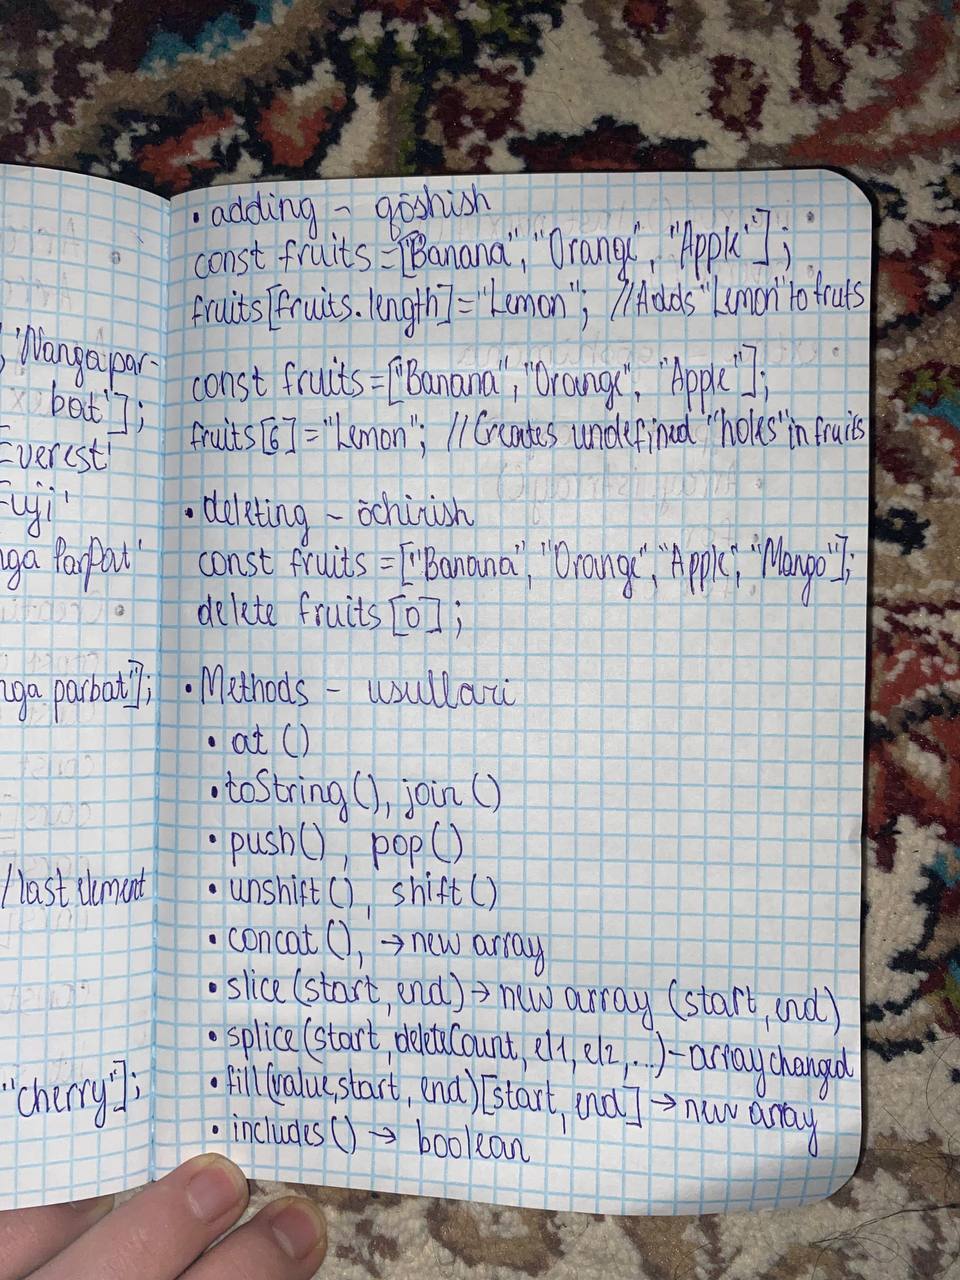 'Nangapar-
bat'];
Everest'
Fuji'
nga Parpat'
nga parbat"];
/last element
"cherry"];
• adding - qōshish
const fruits = ["Banana", "Orange", "Apple"];
fruits[fruits.length]="Lemon"; //Adds "Lemon" to fruts
const fruits = ["Banana", "Orange", "Apple"];
fruits[6] = "Lemon"; //Creates undefined "holes" in fruits
• deleting - ōchirish
const fruits = ["Banana", "Orange", "Apple", "Mango"];
delete fruits [0];
• Methods - usullari
• at ()
• toString(), join ()
• push(), pop()
• unshift(), shift()
• concat (), → new array
• slice (start, end) → new array (start, end)
• splice (start, deleteCount, el1, el2, ...) - array changed
• fill(value, start, end) [start, end] → new array
• includes () → boolean